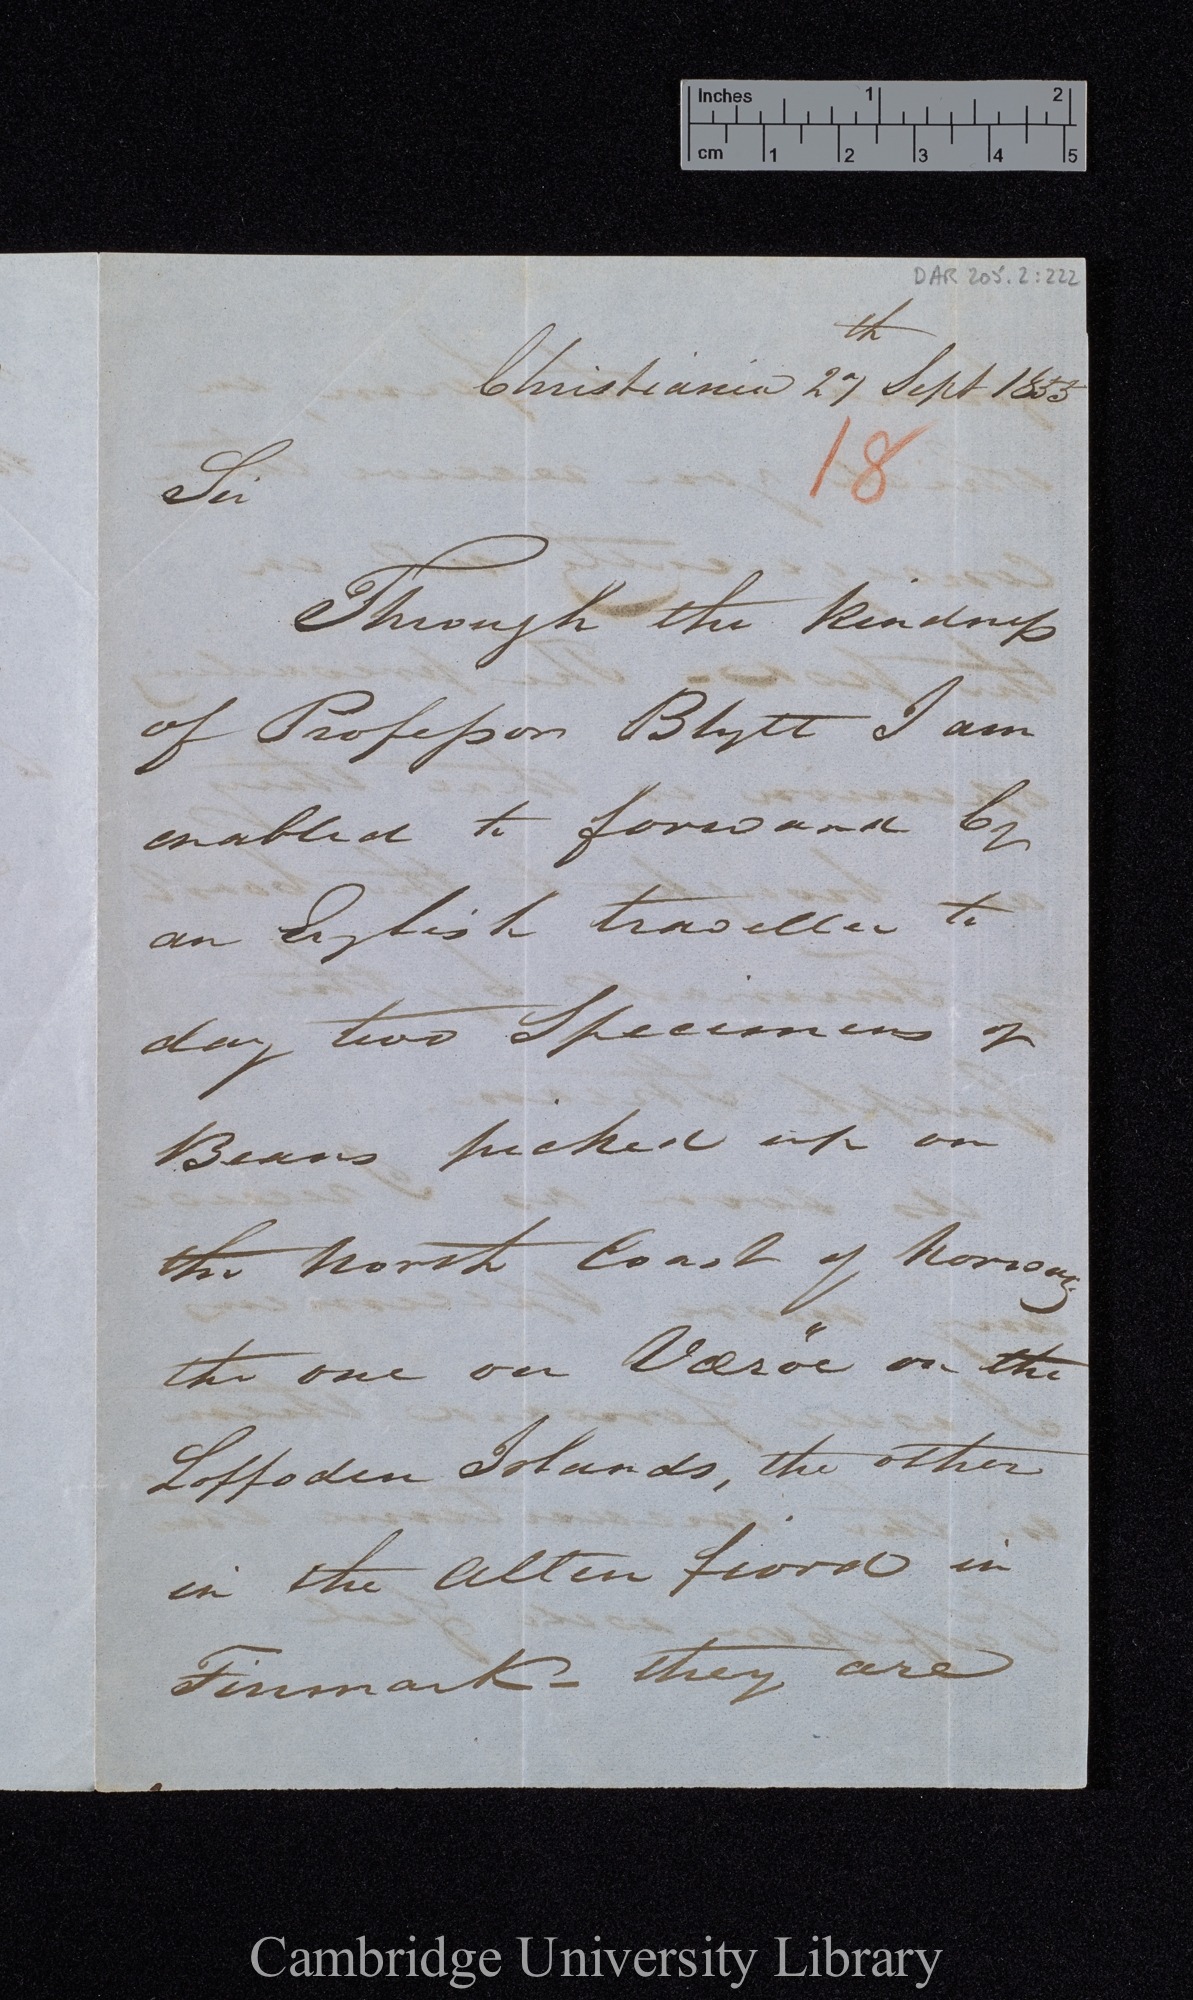 Inches 1 2
cm 1 2 3 4 5
DAR 205.2:222
Christiania 27th Sept 1855
18
Sir
Through the kindness
of Professor Blytt I am
enabled to forward by
an English traveller to
day two Specimens of
Beans picked up on
the North Coast of Norway,
the one on Væröe on the
Loffoden Islands, the other
in the Alten fiord in
Finmark – they are
Cambridge University Library